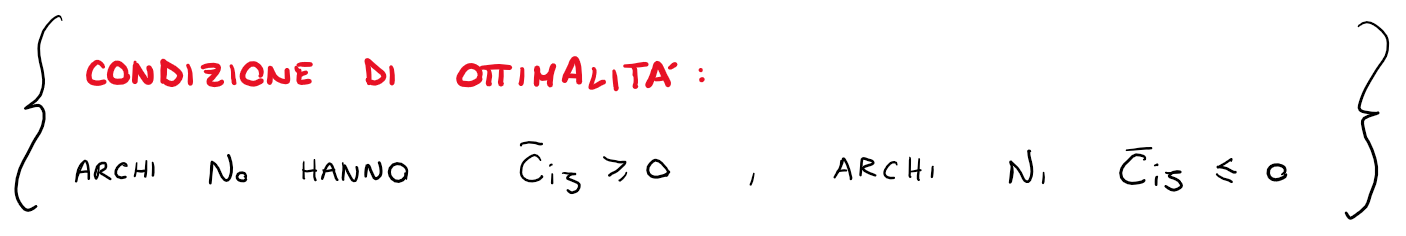 CONDIZIONE DI OTTIMALITÀ:
ARCHI N₀ HANNO C̄ij ≥ 0 , ARCHI N₁ C̄ij ≤ 0